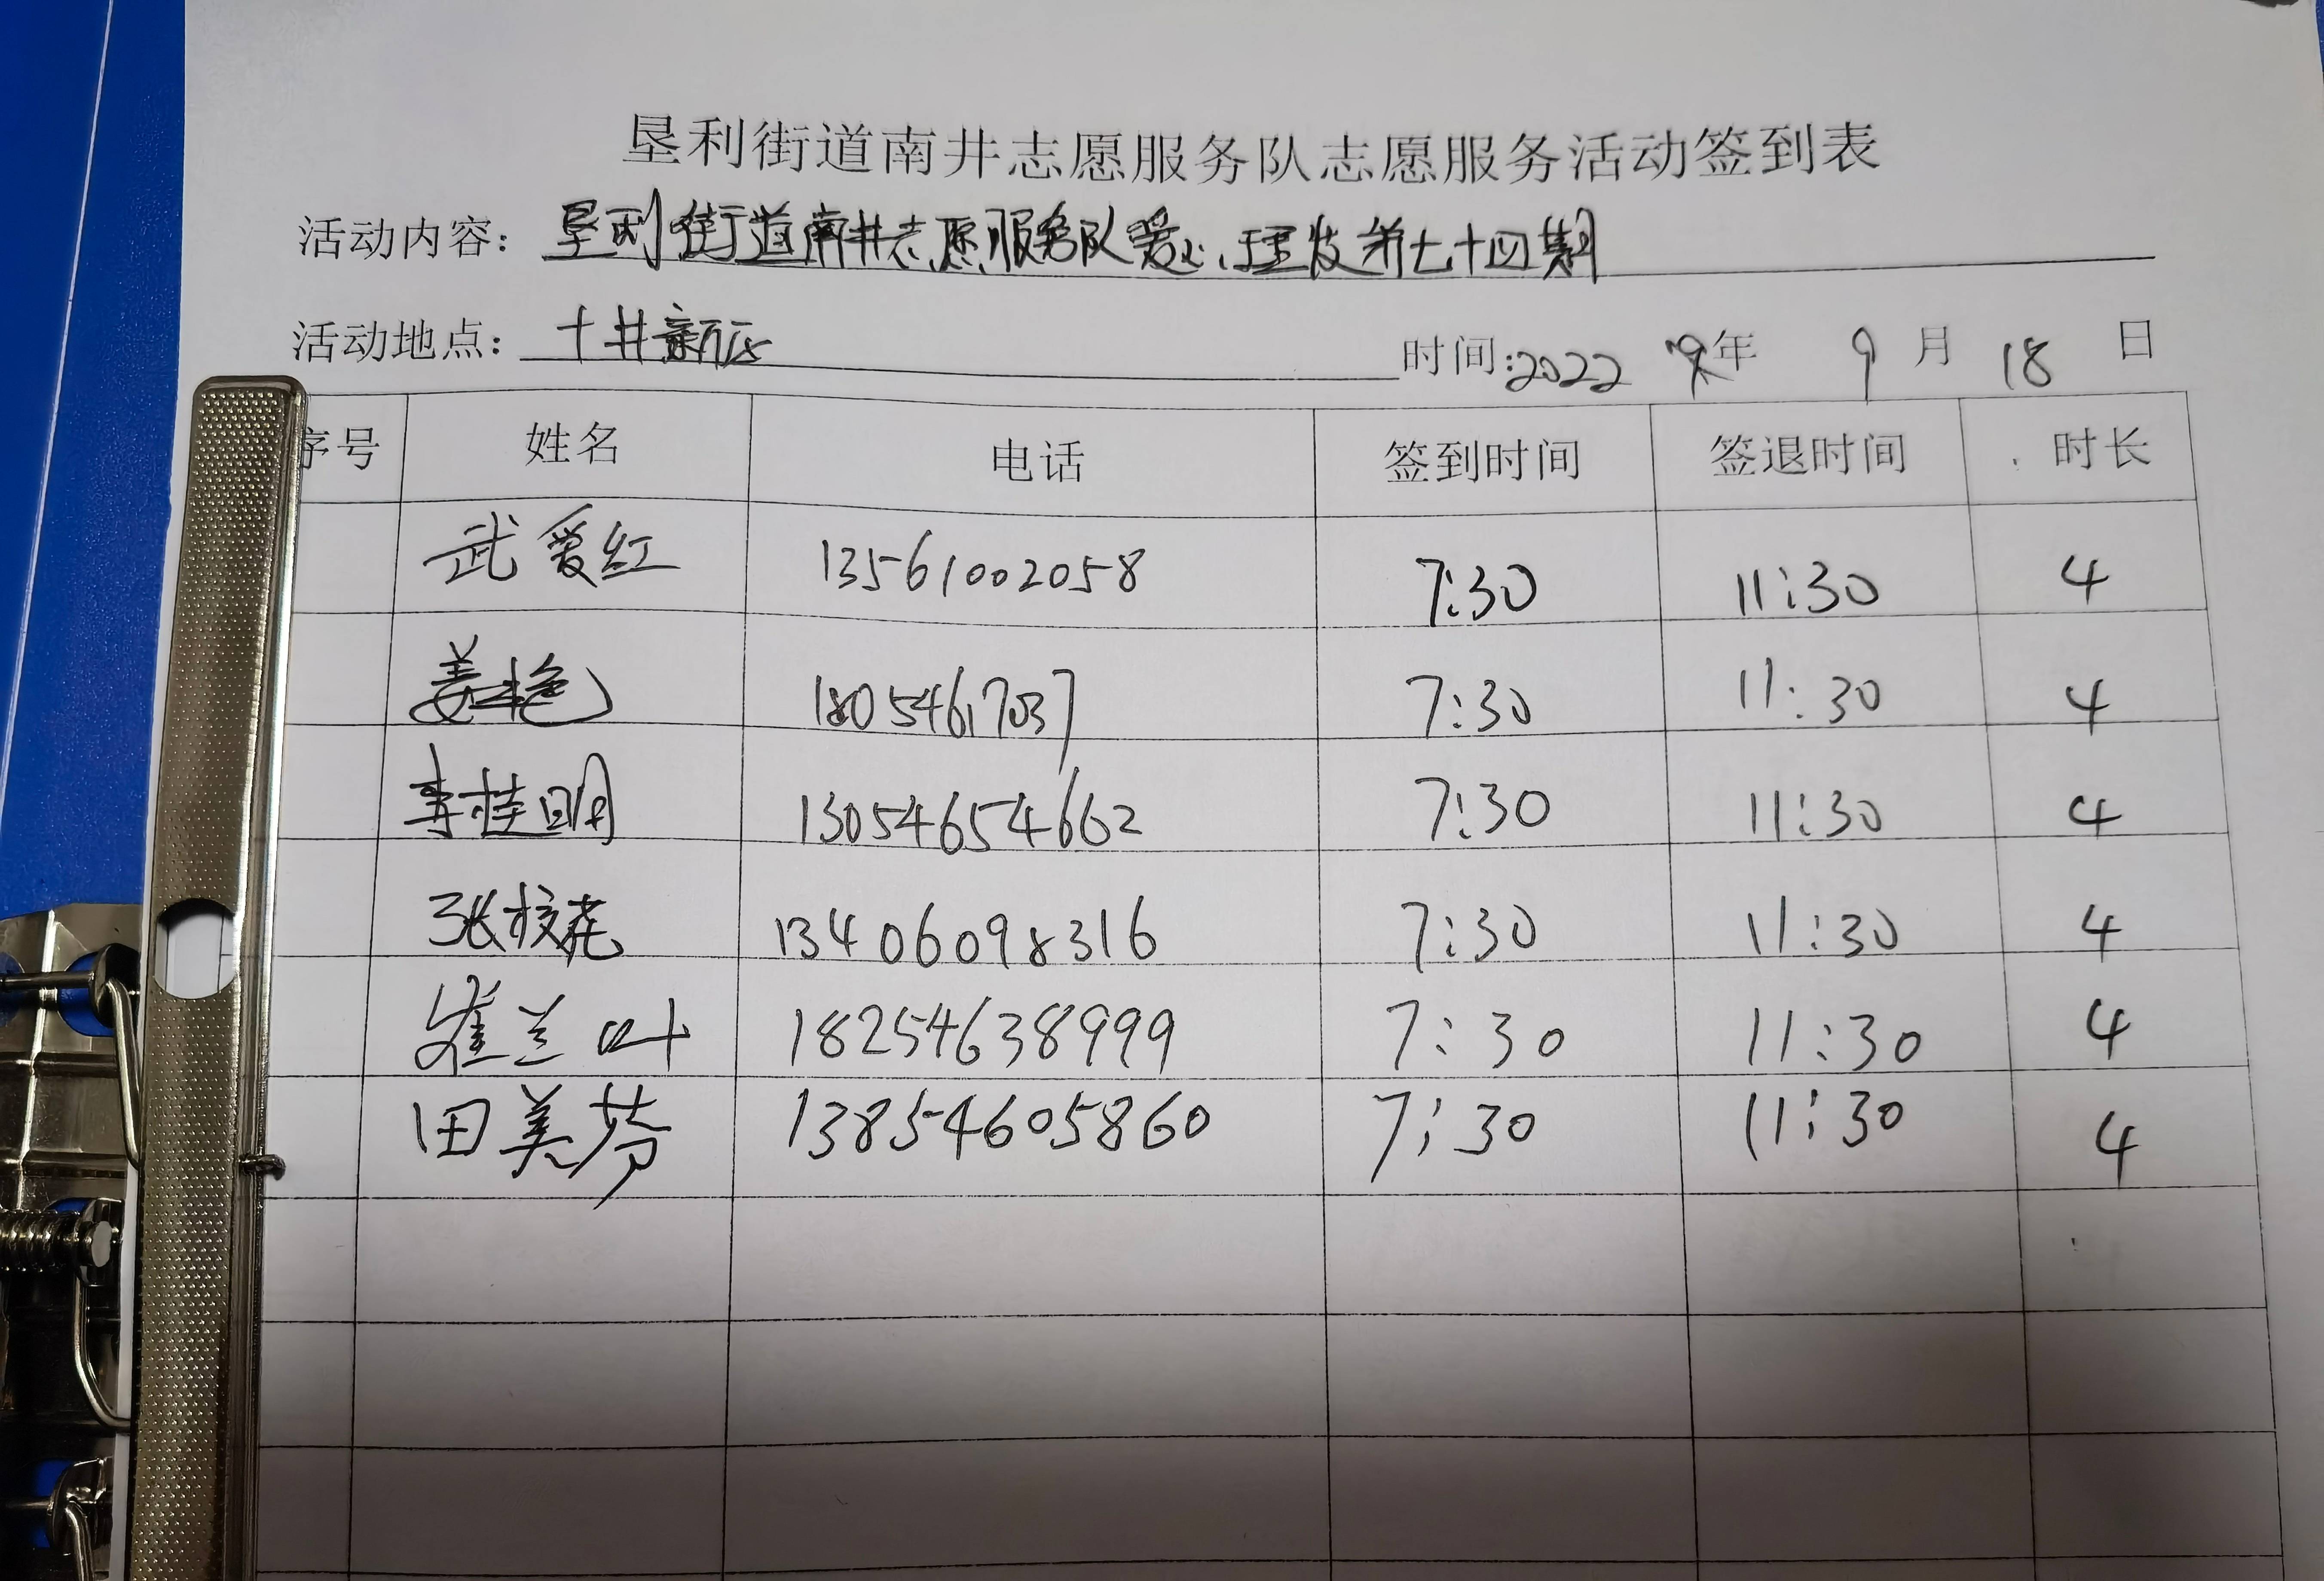 垦利街道南井志愿服务队志愿服务活动签到表
活动内容：垦利街道南井志愿服务队爱心理发第七十四期
活动地点：十井新区 时间：2022年 9月 18日
序号 姓名 电话 签到时间 签退时间 时长
武爱红 13561002058 7:30 11:30 4
姜艳 18054617037 7:30 11:30 4
李桂明 13054654662 7:30 11:30 4
张校花 13406098316 7:30 11:30 4
崔兰叶 18254638999 7:30 11:30 4
田美芬 13854605860 7:30 11:30 4